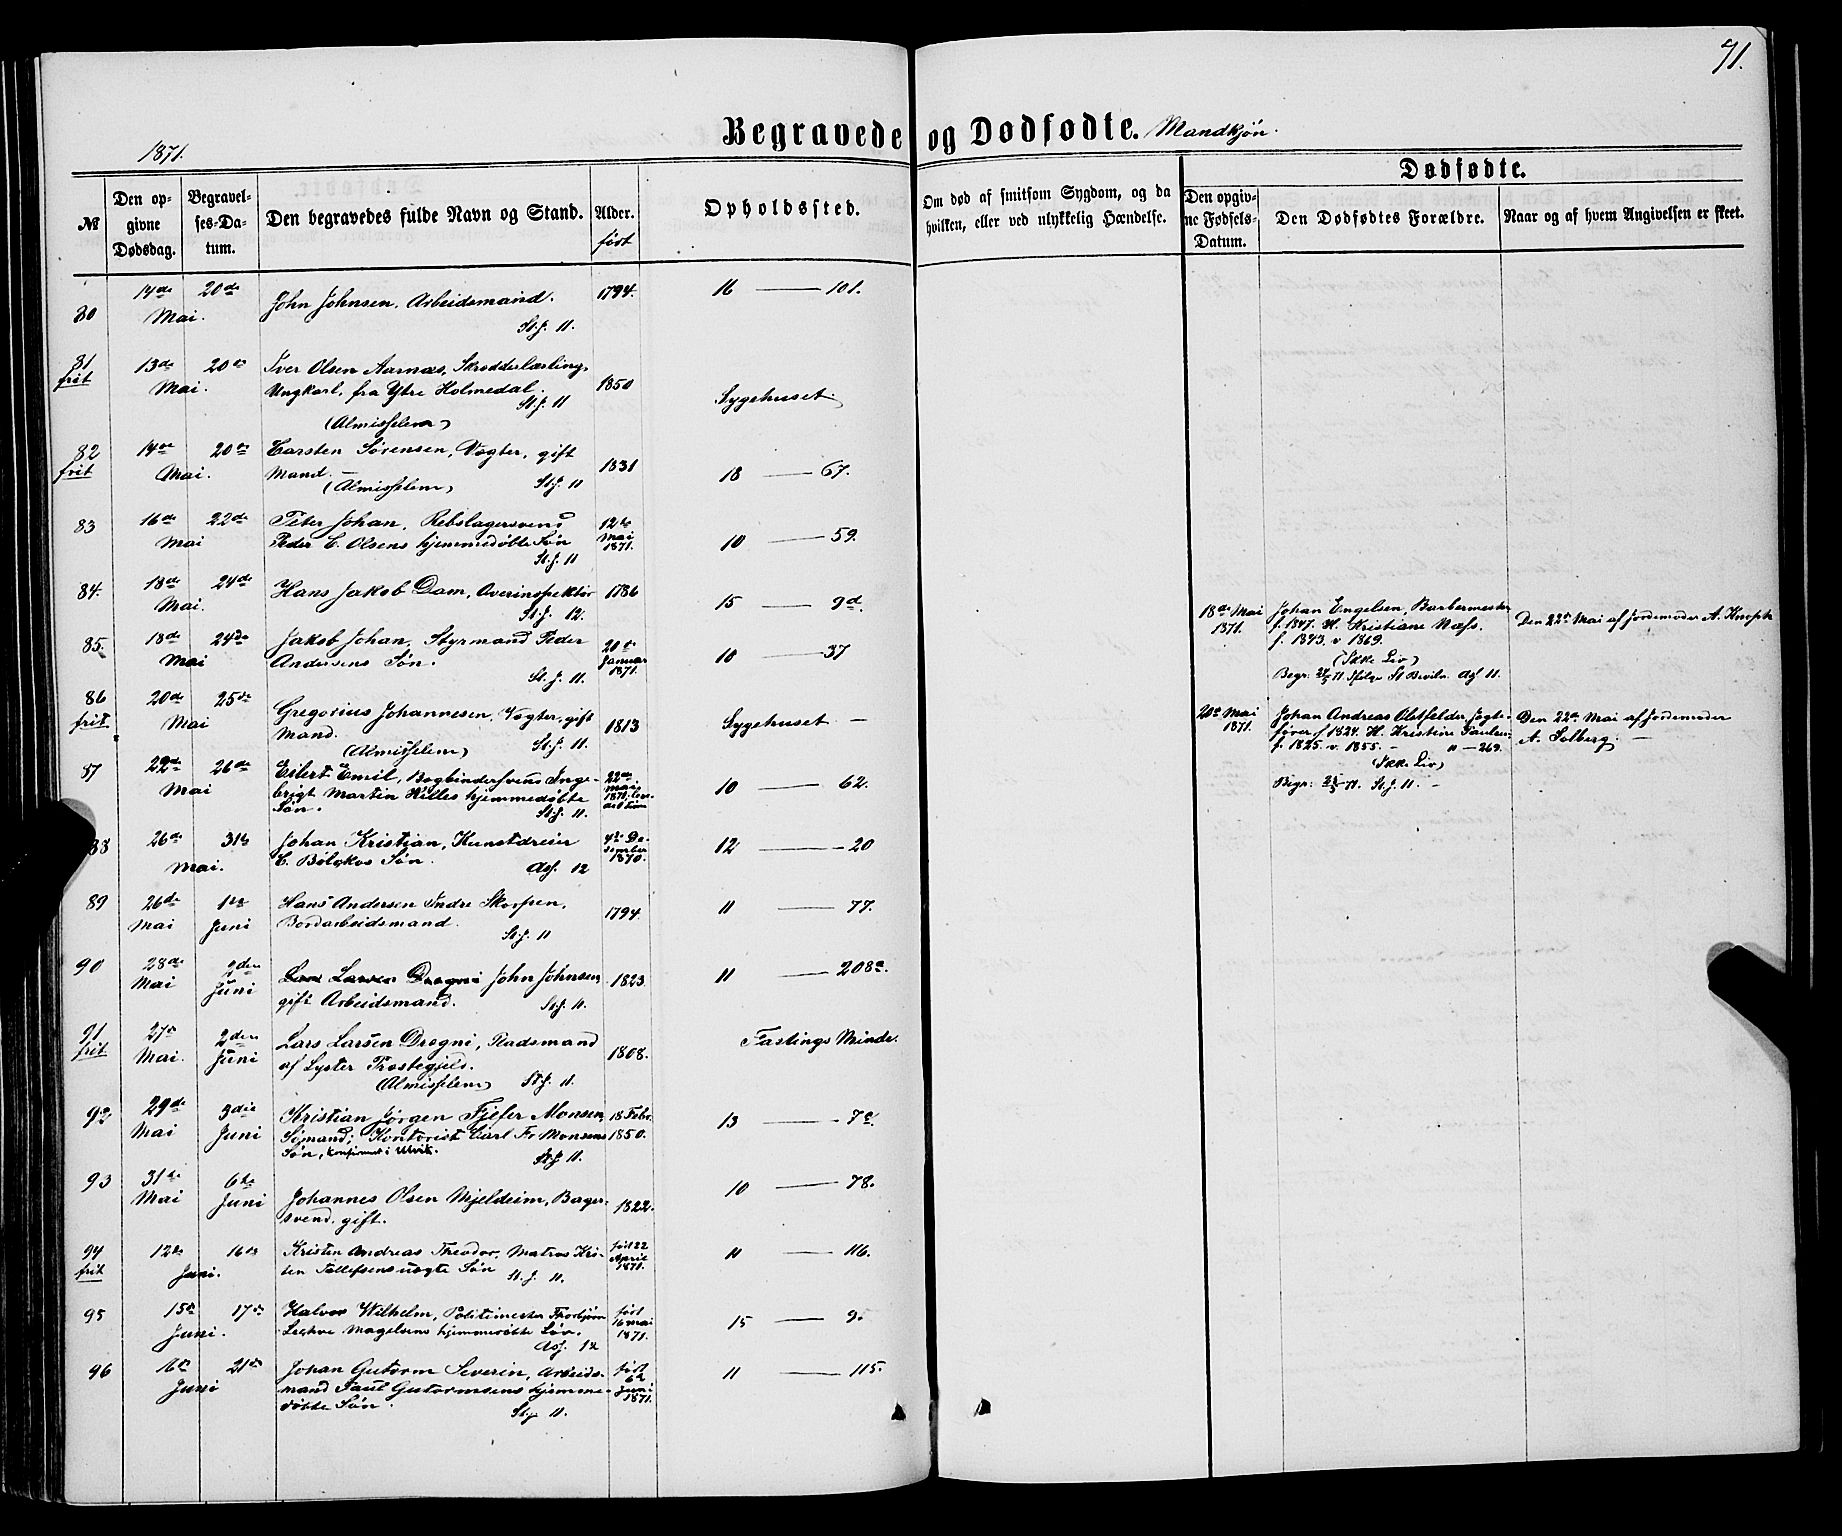 71.
Begravede og Dødfødte. Mandkjøn.
1871.
Dødfødte.
№
Den opgivne Dødsdag.
Begravelses-Datum.
Den begravedes fulde Navn og Stand.
Alder.
født
Opholdssted.
Om død af smitsom Sygdom, og da hvilken, eller ved ulykkelig Hændelse.
Den opgivne Fødsels-Datum.
Den Dødfødtes Forældre.
Naar og af hvem Angivelsen er skeet.
80 14de Mai. 20de John Johnsen, Arbeidsmand. 1794. 16 — 101.
St. J. 11.
81 frit 13de Mai. 20de Iver Olsen Aarnæs, Skrædderlærling,
Ungkarl, fra Ytre Holmedal. 1850 Sygehuset.
St. J. 11
(Almisselem)
82 frit 14de Mai. 20de Carsten Sørensen, Vægter, gift
Mand. — 1831 18 — 67.
(Almisselem) St. J. 11
83 16de Mai 22de Peter Johan, Rebslagersvend
Peder C. Olsens hjemmedøbte Søn 12te Mai 1871. 10 — 59.
St. J. 11
84. 18de Mai. 24de Hans Jakob Dam, Overinspektør 1786 15 — 9d.
St. J. 12.
85. 18de Mai 24de Jakob Johan, Styrmand Peder
Andersens Søn. 20de Januar 1871. 10 — 37
St. J. 11.
86 frit 20de Mai 25de Gregorius Johannesen, Vægter, gift
Mand. 1813 Sygehuset —
(Almisselem) St. J. 11.
87 22de Mai 26de Eilert Emil, Bogbindersvend Inge-
brigt Martin Hilles hjemmedøbte
Søn. 22de Mai 1871. 10 — 62.
St. J. 11.
88 26de Mai. 31te Johan Kristian, Kunstdreier
C. Bølckos Søn. 4de December 1870. 12 — 20
Ass. 12
89 26de Mai 1ste Juni Hans Andersen Indre Skorpen,
Bordarbeidsmand. 1794. 11 — 77.
St. J. 11
90 28de Mai 2den Juni Lars Larsen Drægni John Johnsen,
gift Arbeidsmand. 1823 11 — 208a.
St. J. 11.
91 frit 27de Mai. 2den Juni Lars Larsen Drægni, Pladsmand
af Lyster Præstegjeld. 1808. Fastings Minde.
(Almisselem) St. J. 11.
92 29de Mai 3die Juni Kristian Jørgen Fjeser Monsen,
Sømand, Kontorist Carl Fr. Monsens
Søn, konfirmert i Ulvik. 18 Febr. 1850. 13 — 7c.
St. J. 11.
93 31te Mai 6te Juni Johannes Olsen Mjeldeim, Bager-
svend, gift. 1822. 10 — 78.
94 frit 12te Juni. 16de Kristen Andreas Theodor, Matros Kri-
sten Tollefsens uægte Søn født 22 April 1871. 11 — 116.
St. J. 11.
95 15de Juni. 17de Halvor Wilhelm, Politimester Thorbjørn
Magelsens hjemmedøbte Søn. født 16 Mai 1871. 15 — 9.
Ass. 12
96 16de Juni 21de Johan Gutorm Severin, Arbeids-
mand Paul Gutormsens hjemme-
døbte Søn. født 6te Juni 1871. 11 — 115.
St. J. 11.
18de Mai 1871. Johan Engelsen, Barbermester
f. 1847. H. Kristiane Næss.
f. 1843. v. 1869.
(Ikke Liv)
Den 22de Mai af Jordemoder A. Knoph
20de Mai 1871. Johan Andreas Oldfelder, Jagte-
fører f. 1824. H. Kristine Paulsen
f. 1825. v. 1855. — 11 — 269.
(Ikke Liv)
St. J. 11. —
Den 22de Mai af Jordemoder
A. Solberg. —